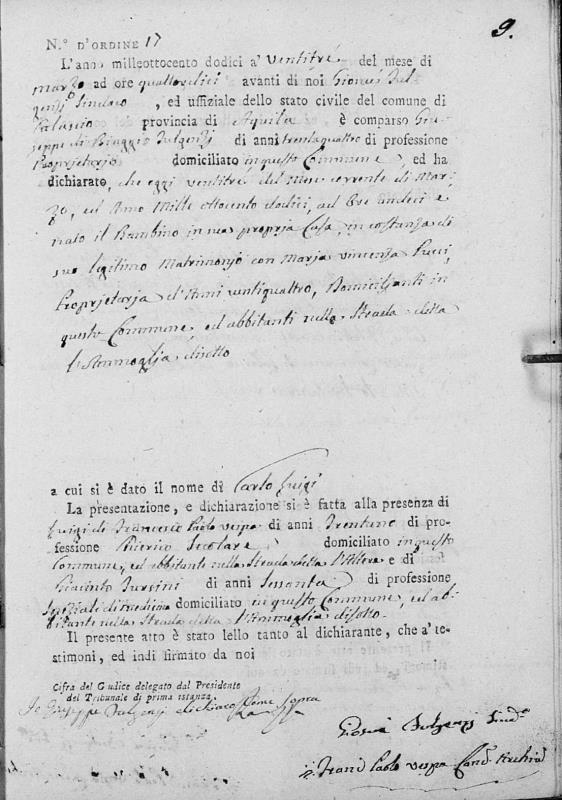 9.
N.° D'ORDINE 17
L'anno milleottocento dodici a' ventitrè del mese di
marzo ad ore quattordici avanti di noi Giosuè Ful-
genzj Sindaco, ed uffiziale dello stato civile del comune di
provincia di Aquila è comparso Giu-
seppe di Biaggio Fulgenzj di anni trentaquattro di professione
Proprietarjo domiciliato in questo Commune, ed ha
dichiarato, che oggi ventitrè del Mese corrente di Mar-
zo, ed Anno Mille ottocento dodici, ad Ore undeci è
nato il Bambino in sua propria Casa, in costanza di
suo legitimo Matrimonjo con Marja Vincenza
Proprjetarja d'Anni ventiquattro, Domiciljanti in
questo Commune, ed abbitanti nella Strada detta
disotto
a cui si è dato il nome di Carlo Luigi
La presentazione, e dichiarazione si è fatta alla presenza di
Luigi di Francesco Paolo Vespa di anni Trentuno di pro-
fessione Chierico Secolare domiciliato in questo
Commune, ed abbitante nella Strada detta e di
Giacinto Tursini di anni Sessanta di professione
Speziali di medicina domiciliato in questo Commune, ed ab-
bitante nella Strada detta disotto.
Il presente atto è stato letto tanto al dichiarante, che a' te-
stimoni, ed indi firmato da noi
Cifra del Giudice delegato dal Presidente
del Tribunale di prima istanza.
Io Giuseppe Fulgenzj dichiaro come sopra
Giosuè Fulgenzj Sind.°
Franc.° Paolo Vespa Canc.